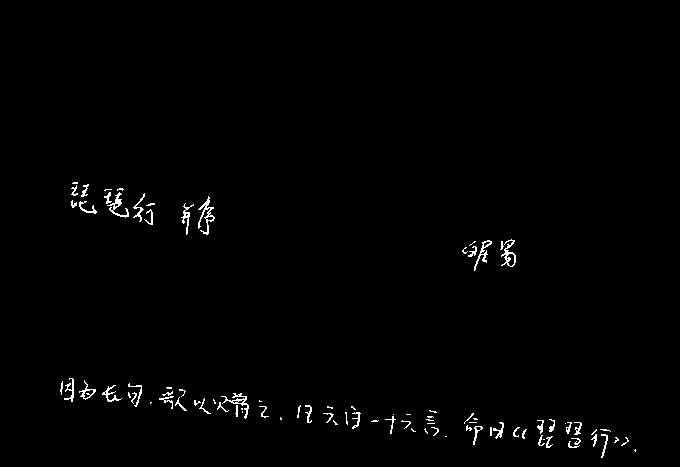 琵琶行 并序
白居易
因为长句,歌以赠之,凡六百一十六言,命曰《琵琶行》.